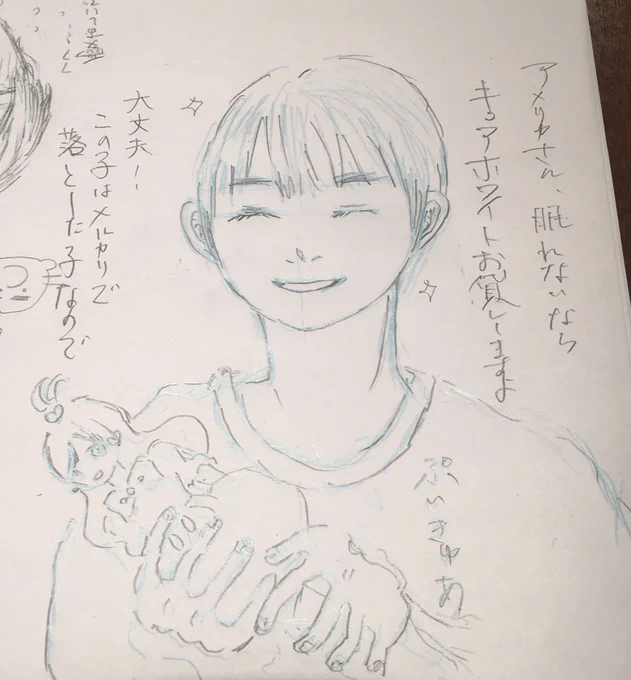 アメリカさん、眠れないなら
キュアホワイトお貸ししますよ
大丈夫！
この子はメルカリで
落とした子なので
ぷいきゅあ